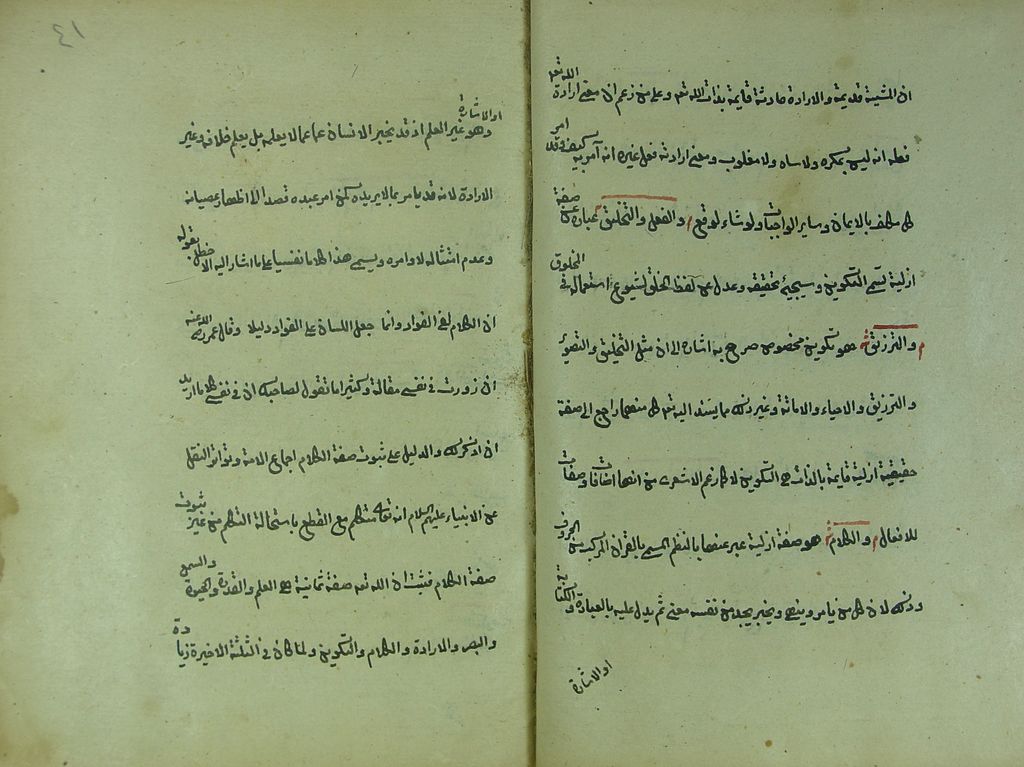 ان المشية قديمة والارادة حادثة قايمة بذات الله تعه وعلى من زعم ان معنى ارادة الله تعه
فعله انه ليس بمكره ولا ساه ولا مغلوب ومعنى ارادته فعل غيره انه آمر به كيف وقد امر
كل مكلف بالايمان وساير الواجبات ولو شاء لوقع م والفعل والتخليق ش عبارة عن صفة
ازلية تسمى التكوين وسيجئ تحقيقه وعدل عن لفظ الخلق لشيوع استعماله في المخلوق
م والترزيق ش هو تكوين مخصوص صرح به اشارة الى ان مثل التخليق والتصوير
والترزيق والاحياء والاماتة وغير ذلك مما يسند اليه تعه كل منها راجع الى صفة
حقيقية ازلية قايمة بالذات هي التكوين لا كما زعم الاشعرى من انها اضافات وصفات
للافعال م والكلام ش هو صفة ازلية عبر عنها بالنظم المسمى بالقرآن المركب من الحروف
وذلك لان كل من يامر وينهى ويخبر يجد من نفسه معنى ثم يدل عليه بالعبارة والكتابة
او الاشارة
٤١
او الاشارة
وهو غير العلم اذ قد يخبر الانسان عما لا يعلمه بل يعلم خلافه وغير
الارادة لانه قد يامر بما لا يريده كمن امر عبده قصدا الى اظهار عصيانه
وعدم امتثاله لاوامره ويسمى هذا كلاما نفسيا على ما اشار اليه الاخطل بقوله
ان الكلام لفى الفواد وانما جعل اللسان على الفواد دليلا وقال عمر رضى الله عنه
انى زورت في نفسى مقالة وكثيرا ما تقول لصاحبك ان في نفسى كلاما اريد
ان اذكره لك والدليل على ثبوت صفة الكلام اجماع الامة وتواتر النقل
عن الانبياء عليهم السلام انه تعالى متكلم مع القطع باستحالة التكلم من غير ثبوت
صفة الكلام فثبت ان الله تعه صفة ثمانية هي العلم والقدرة والحيوة والسمع
والبصر والارادة والكلام والتكوين ولما كان في الثلثة الاخيرة زيادة